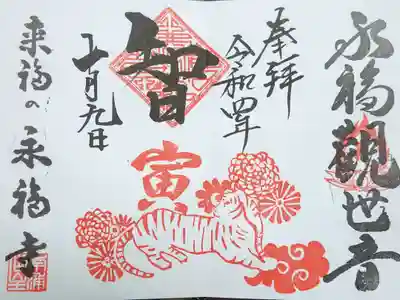 永福觀世音
奉拝
令和四年
智
寅
十月九日
来福の永福寺